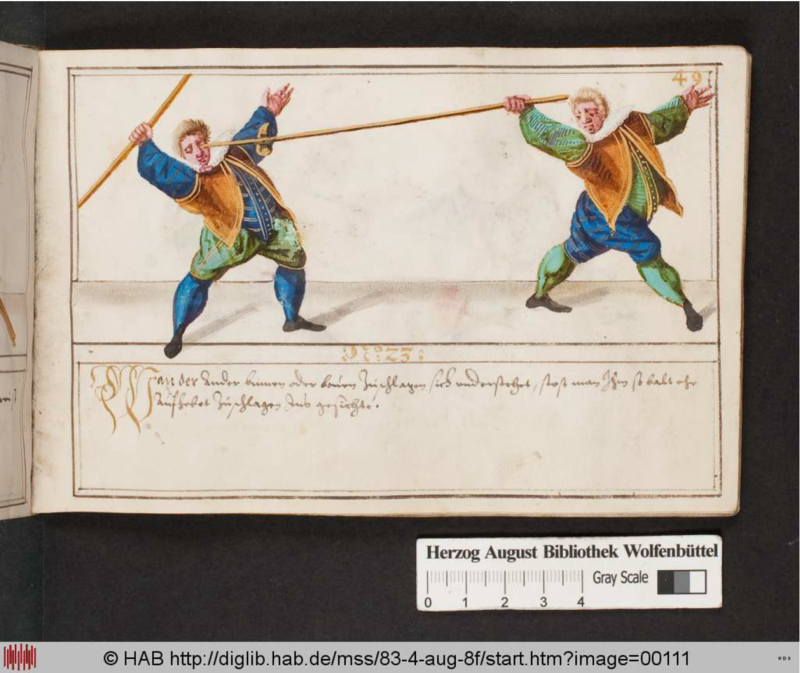 49
No: 23:
Wan der Ander binnen oder bouen Zuschlagen sich understehet, stost man Ihn so balt ehr
Aufhebet Zuschlagen Ins gesichte.
Herzog August Bibliothek Wolfenbüttel
Gray Scale
0 1 2 3 4
© HAB http://diglib.hab.de/mss/83-4-aug-8f/start.htm?image=00111